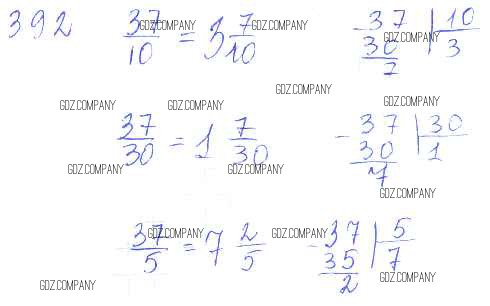 392 37/10 = 3 7/10 - 37 | 10
30 3
7
37/30 = 1 7/30 - 37 | 30
30 1
7
37/5 = 7 2/5 - 37 | 5
35 7
2
GDZ.COMPANY GDZ.COMPANY GDZ.COMPANY
GDZ.COMPANY
GDZ.COMPANY GDZ.COMPANY GDZ.COMPANY
GDZ.COMPANY GDZ.COMPANY
GDZ.COMPANY
GDZ.COMPANY GDZ.COMPANY
GDZ.COMPANY GDZ.COMPANY